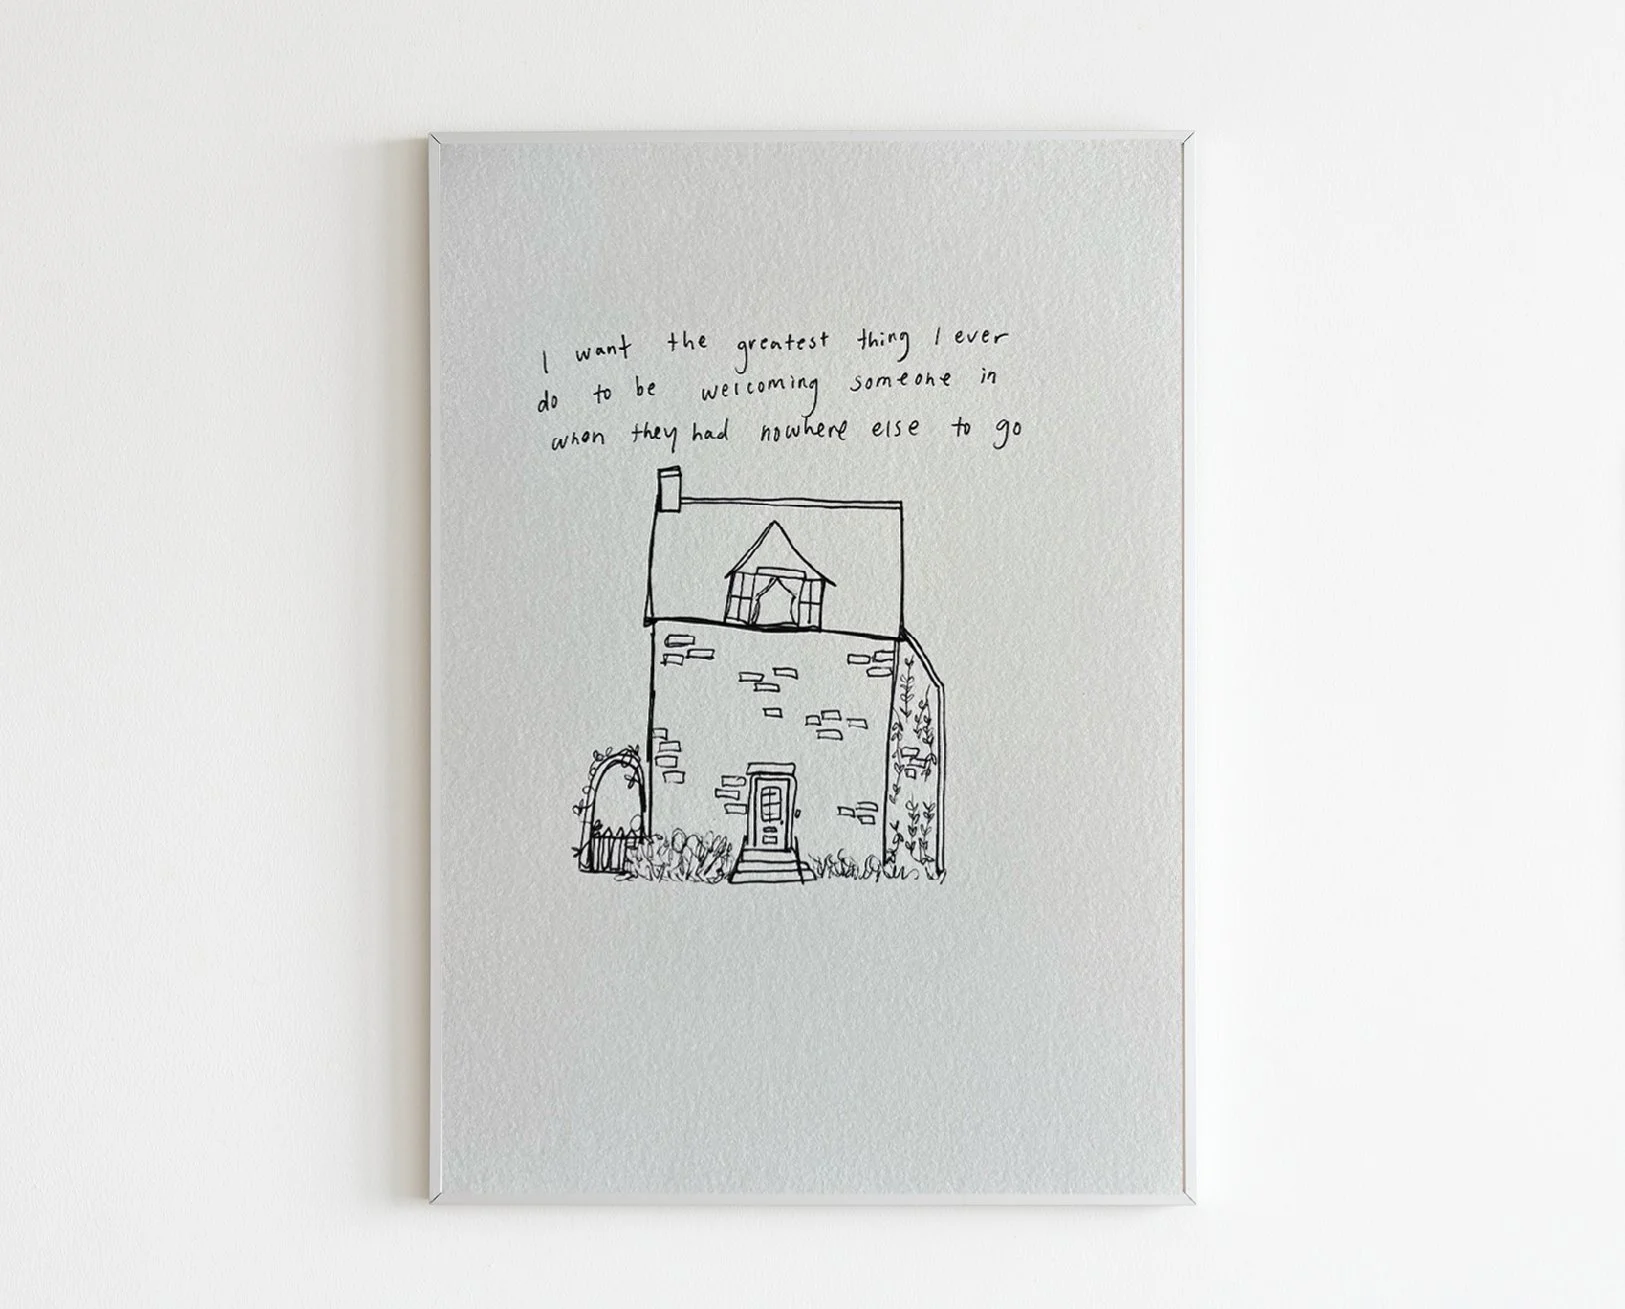 I want the greatest thing I ever
do to be welcoming someone in
when they had nowhere else to go